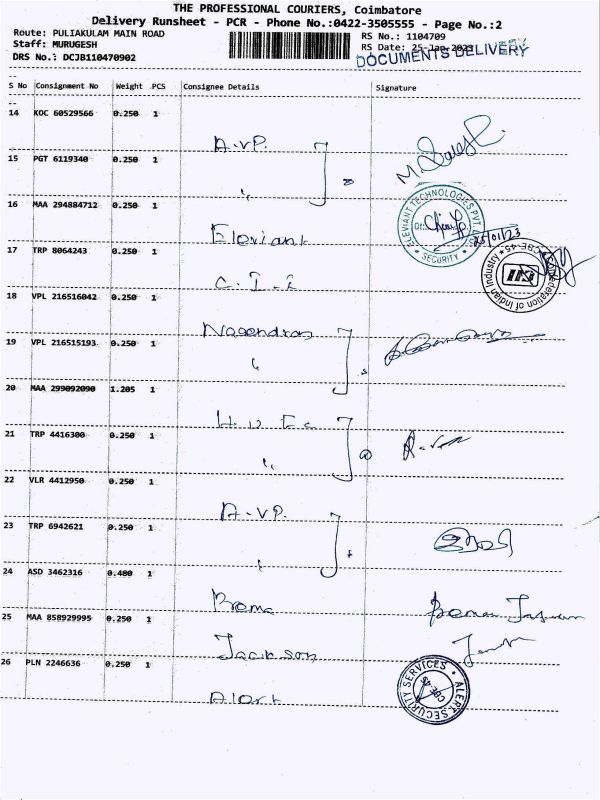 THE PROFESSIONAL COURIERS, Coimbatore
Delivery Runsheet - PCR - Phone No.:0422-3505555 - Page No.:2
Route: PULIAKULAM MAIN ROAD RS No.: 1104709
Staff: MURUGESH RS Date: 25-Jan-2023
DRS No.: DCJB110470902 DOCUMENTS DELIVERY
S No Consignment No Weight PCS Consignee Details Signature
14 KOC 60529566 0.250 1
A.VP.
15 PGT 6119340 0.250 1
"
16 MAA 294884712 0.250 1
ELEVIANT TECHNOLOGIES PVT. SECURITY
25/01/23
Eleviant
17 TRP 8064243 0.250 1
Confederation of Indian Industry CBE-45 CII
C. I. I
18 VPL 216516042 0.250 1
Nagendran
19 VPL 216515193 0.250 1
"
20 MAA 299092090 1.205 1
21 TRP 4416300 0.250 1
"
22 VLR 4412950 0.250 1
A.VP.
23 TRP 6942621 0.250 1
"
24 ASD 3462316 0.480 1
25 MAA 858929995 0.250 1
Jackson
26 PLN 2246636 0.250 1
ALERT SECURITY SERVICES CBE-45
Alert